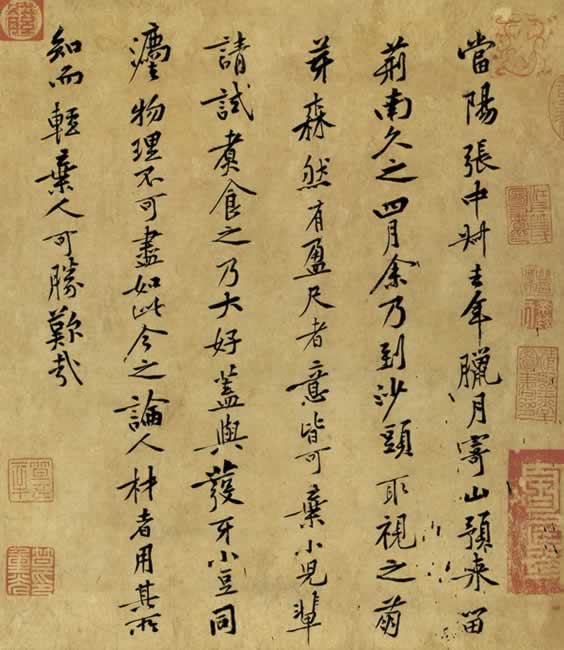 當陽張中叔去年臘月寄山預來留
荊南久之四月余乃到沙頭取視之萌
芽森然有盈尺者意皆可棄小兒輩
請試煮食之乃大好蓋與發牙小豆同
法物理不可盡如此今之論人材者用其所
知而輕棄人可勝歎哉